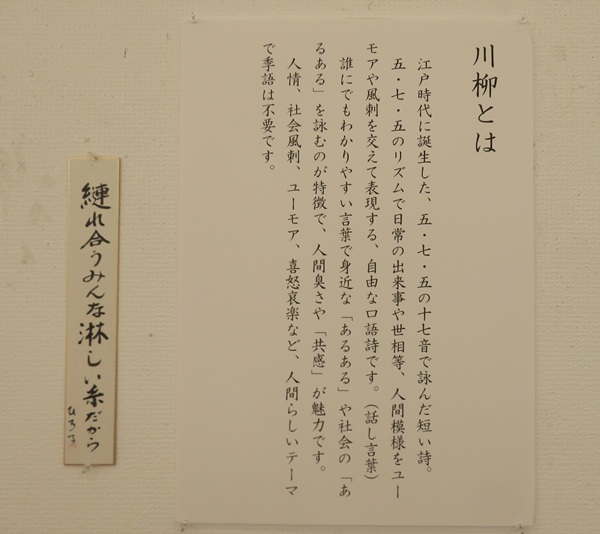 川柳とは
江戸時代に誕生した、五・七・五の十七音で詠んだ短い詩。
五・七・五のリズムで日常の出来事や世相等、人間模様をユー
モアや風刺を交えて表現する、自由な口語詩です。（話し言葉）
誰にでもわかりやすい言葉で身近な「あるある」や社会の「あ
るある」を詠むのが特徴で、人間臭さや「共感」が魅力です。
人情、社会風刺、ユーモア、喜怒哀楽など、人間らしいテーマ
で季語は不要です。
縺れ合うみんな淋しい糸だから